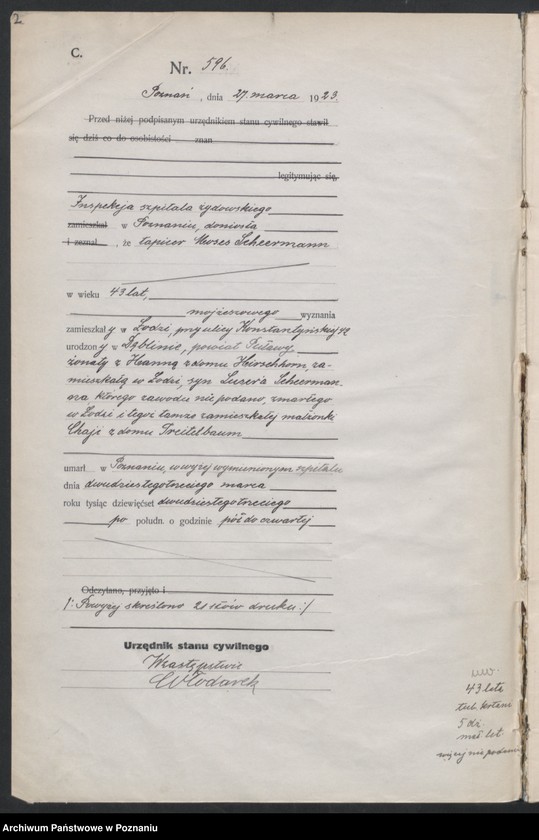 2
C.
Nr. 596.
Poznań, dnia 27. marca 1923.
Przed niżej podpisanym urzędnikiem stanu cywilnego stawił
się dziś co do osobistości znan
legitymując się,
Inspekcja szpitala żydowskiego
zamieszkał w Poznaniu, doniosła
i zeznał, że tapicer Moses Scheermann
w wieku 43 lat,
mojżeszowego wyznania
zamieszkały w Łodzi, przy ulicy Konstantyńskiej
urodzony w Dęblinie, powiat Puławy,
żonaty z Hanną z domu Hirschhorn, za-
mieszkałą w Łodzi, syn Lusera Scheerman-
na, którego zawodu nie podano, zmarłego
w Łodzi i tegoż tamże zamieszkałej małżonki
Chaji z domu Treitelbaum
umarł w Poznaniu, w wyżej wymienionym szpitalu
dnia dwudziestegotrzeciego marca
roku tysiąc dziewięćset dwudziestegotrzeciego
po połudn. o godzinie pół do czwartej
Odczytano, przyjęto i
/: Powyżej skreślono 21 słów druku :/
Urzędnik stanu cywilnego
W zastępstwie
Włodarek
43 lata
tub. krtani
5 dz
więcej nie podano
Archiwum Państwowe w Poznaniu